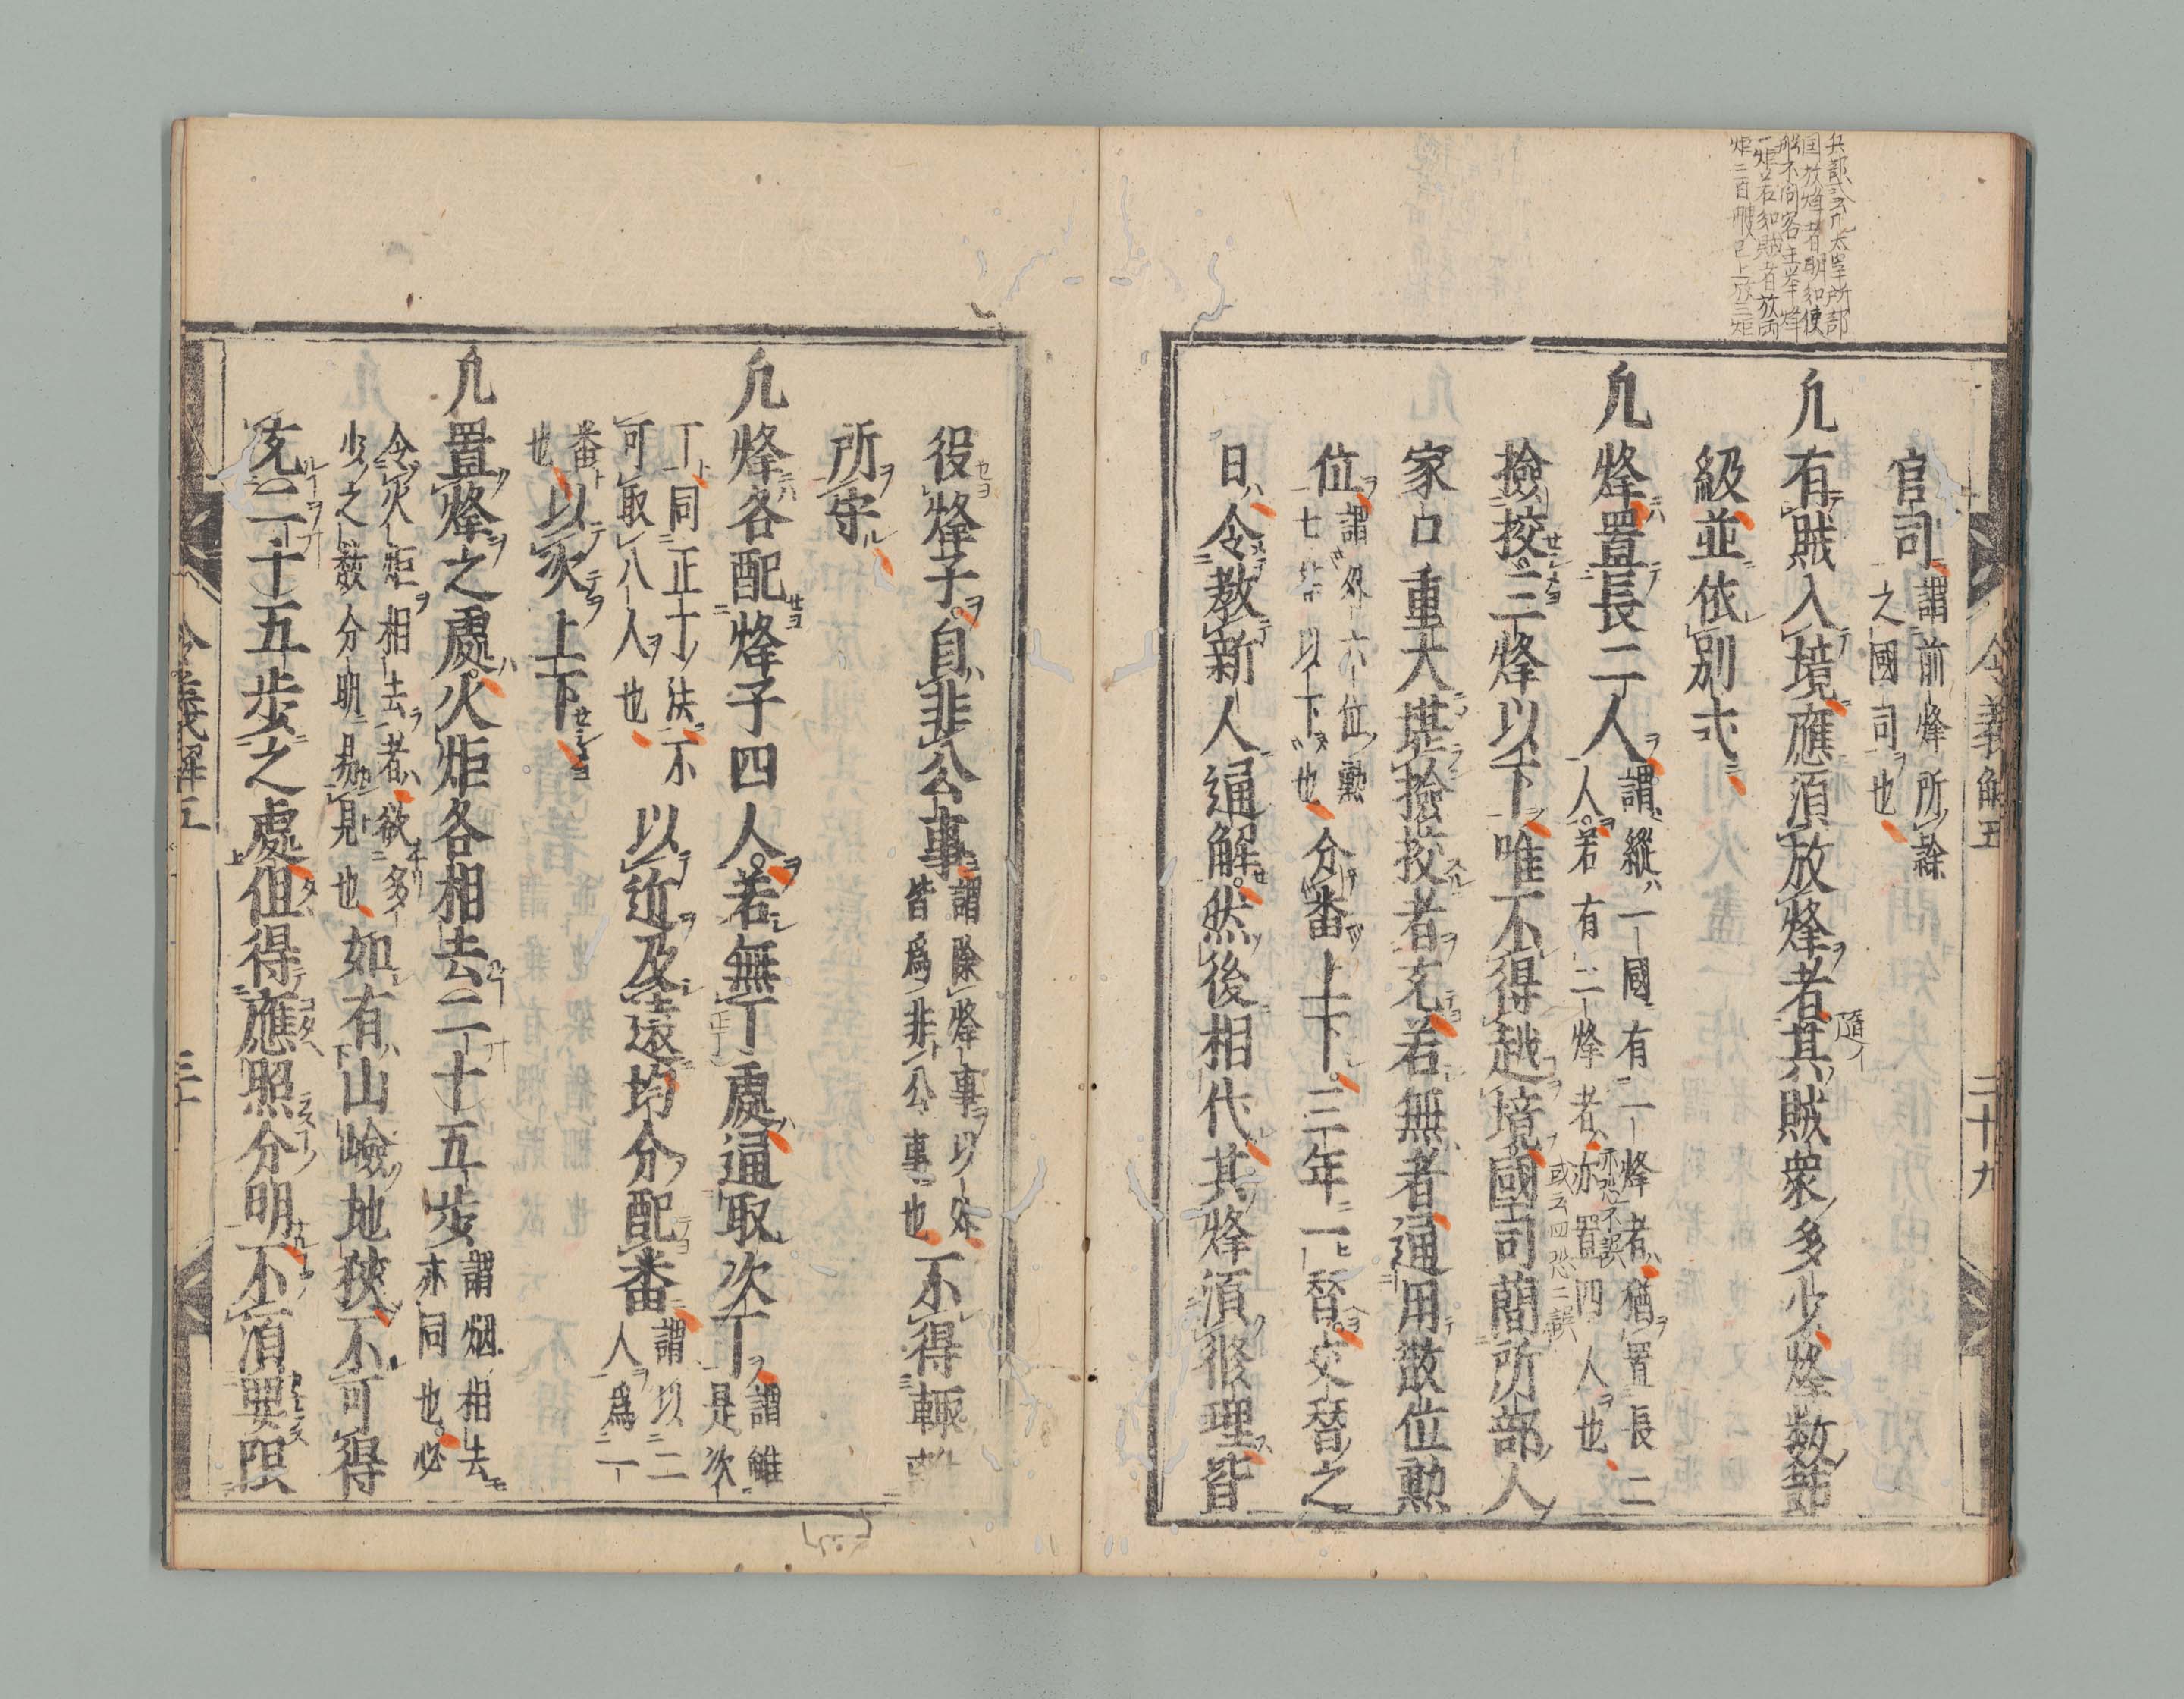 兵部式云凡太宰所部
国放烽者明知使
船不問客主挙烽
一炬若知賊者放両
炬二百艘已上放三炬
令義解五
二十九
官司謂前烽所部
之國司也
凢有賊入境應湏放烽者其賊衆多少烽數節
級並依別式
凢烽置長二人謂縱一國有二烽者猶置長二
人若有三烽者亦置四人也
撿挍三烽以下唯不得越境國司簡所部人
家口重大堪撿挍者充若無者通用散位勲
位謂外六位勲
七等以下也分番上下三年一替交替之
日令教新人通解然後相代其烽湏修理皆
役烽子自非公事謂除烽事以外
皆爲非公事也不得輙離
所守
凢烽各配烽子四人若無丁處通取次丁謂雖
是次
丁同正丁法不
可取八人也以近及遠均分配番謂以二
人爲一
番
也以次上下
凢置烽之處火炬各相去二十五步謂烟相去
亦同也必
令火炬相去者欲多
少之數分明易見也如有山嶮地狹不可得
充二十五步之處但得應照分明不湏要限
令義解五
三十